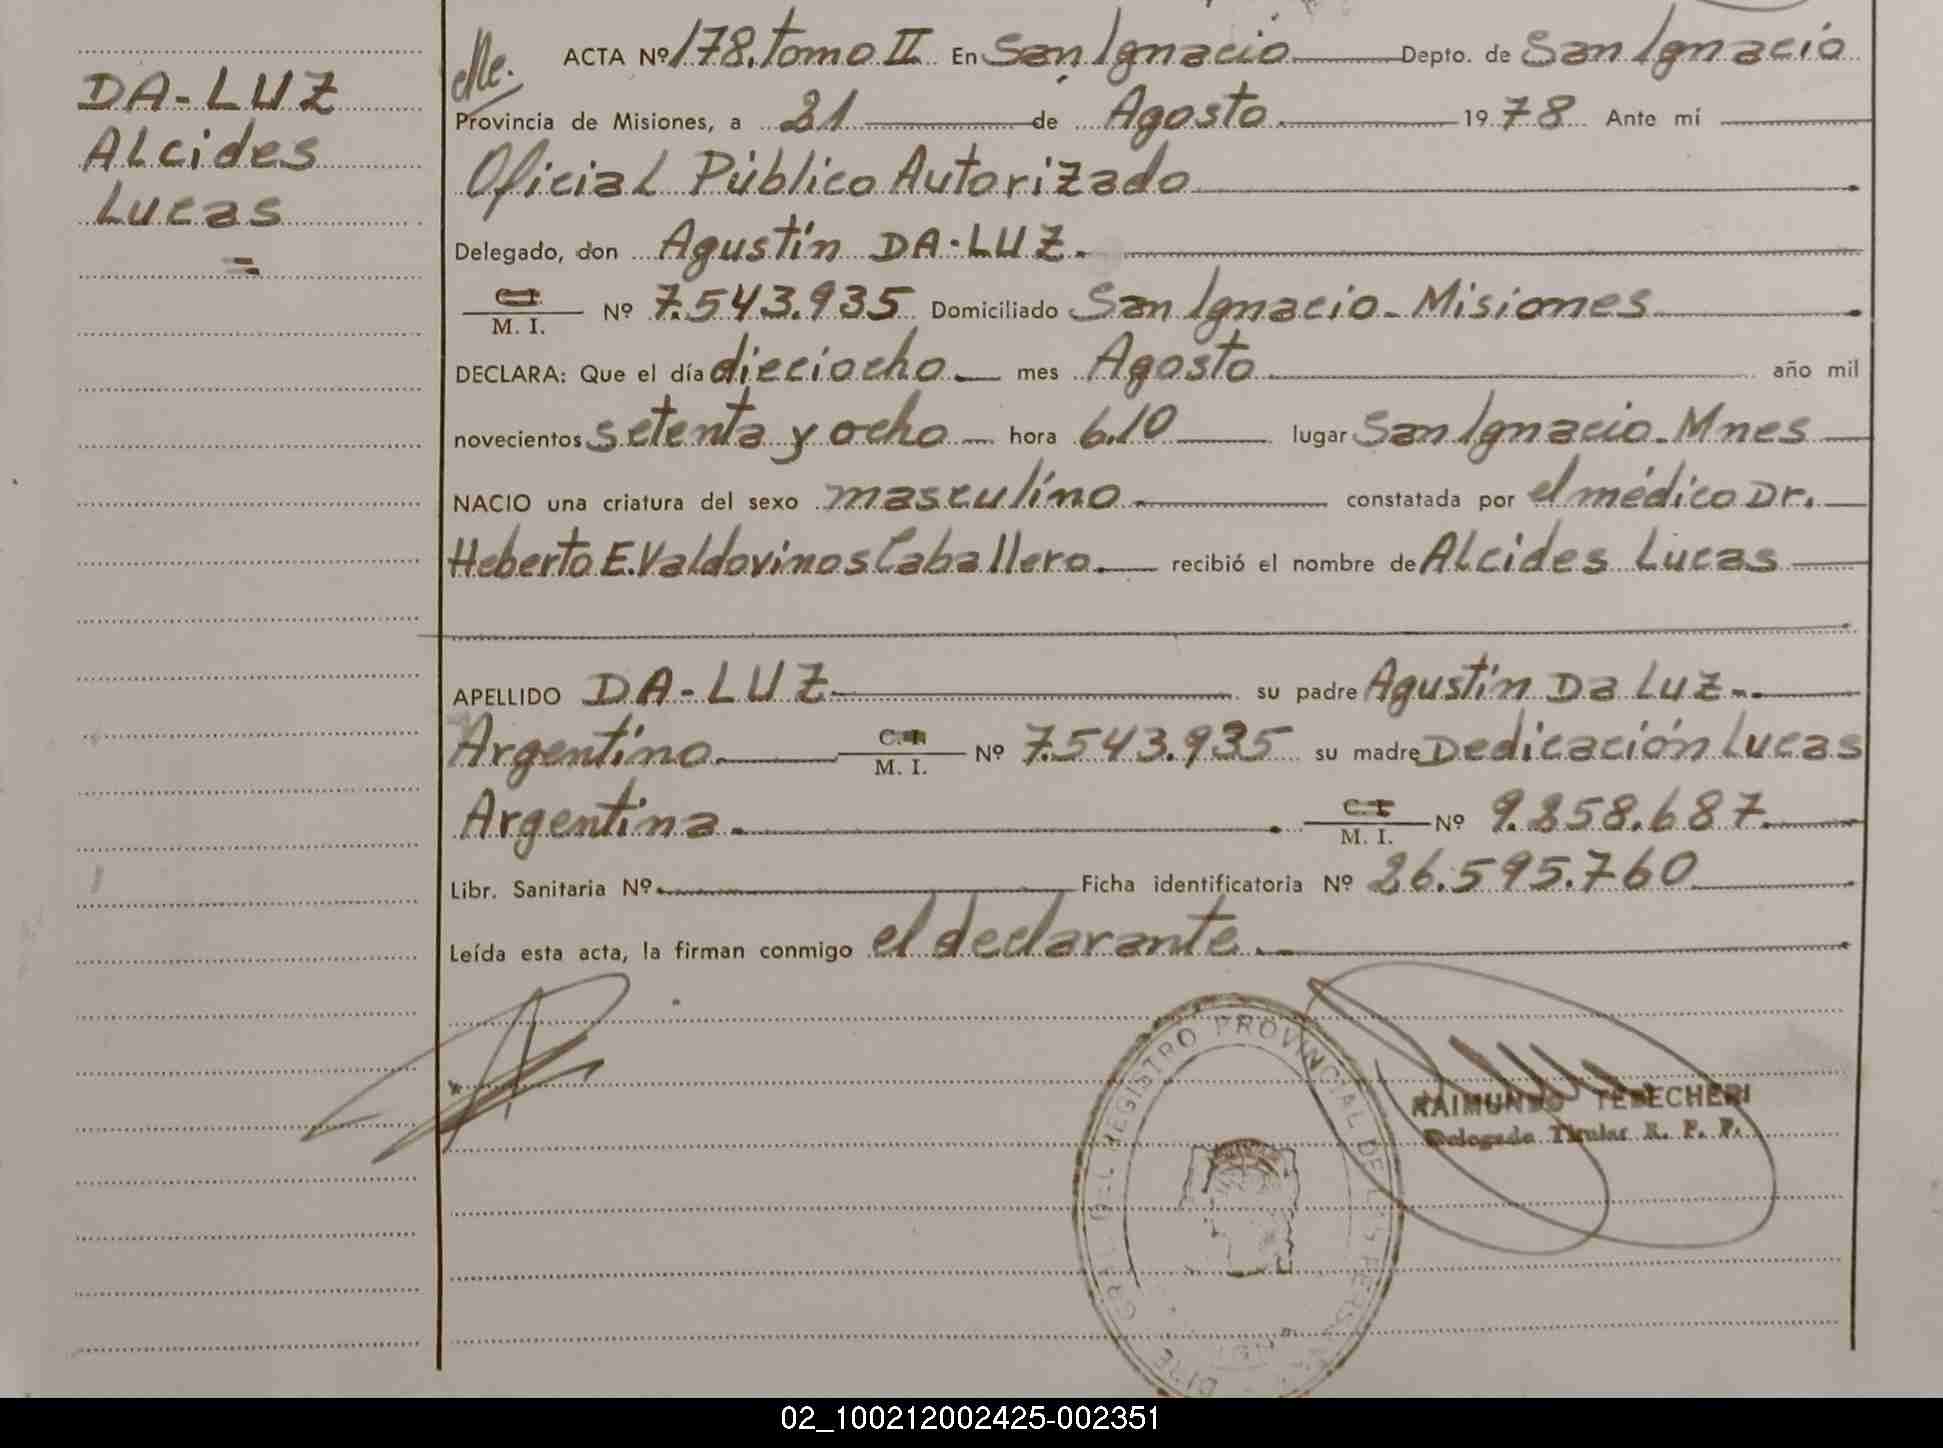 DA-LUZ
Alcides
Lucas
=
ACTA Nº 178. tomo II En San Ignacio Depto. de San Ignacio
Provincia de Misiones, a 21 de Agosto 1978 Ante mí
Oficial Público Autorizado
Delegado, don Agustín DA-LUZ.
C.I. / M. I. Nº 7.543.935 Domiciliado San Ignacio - Misiones
DECLARA: Que el día dieciocho mes Agosto año mil
novecientos setenta y ocho hora 6.10 lugar San Ignacio - Mnes
NACIO una criatura del sexo masculino constatada por el médico Dr.
Heberto E. Valdovinos Caballero. recibió el nombre de Alcides Lucas
APELLIDO DA-LUZ su padre Agustín Da Luz
Argentino C.I. / M. I. Nº 7.543.935 su madre Dedicación Lucas
Argentina C.I. / M. I. Nº 9.858.687
Libr. Sanitaria Nº Ficha identificatoria Nº 26.595.760
Leída esta acta, la firman conmigo el declarante.
REGISTRO PROVINCIAL DE LAS PERSONAS
RAIMUNDO TEBECHERI
Delegado Titular R. P. P.
02_100212002425-002351